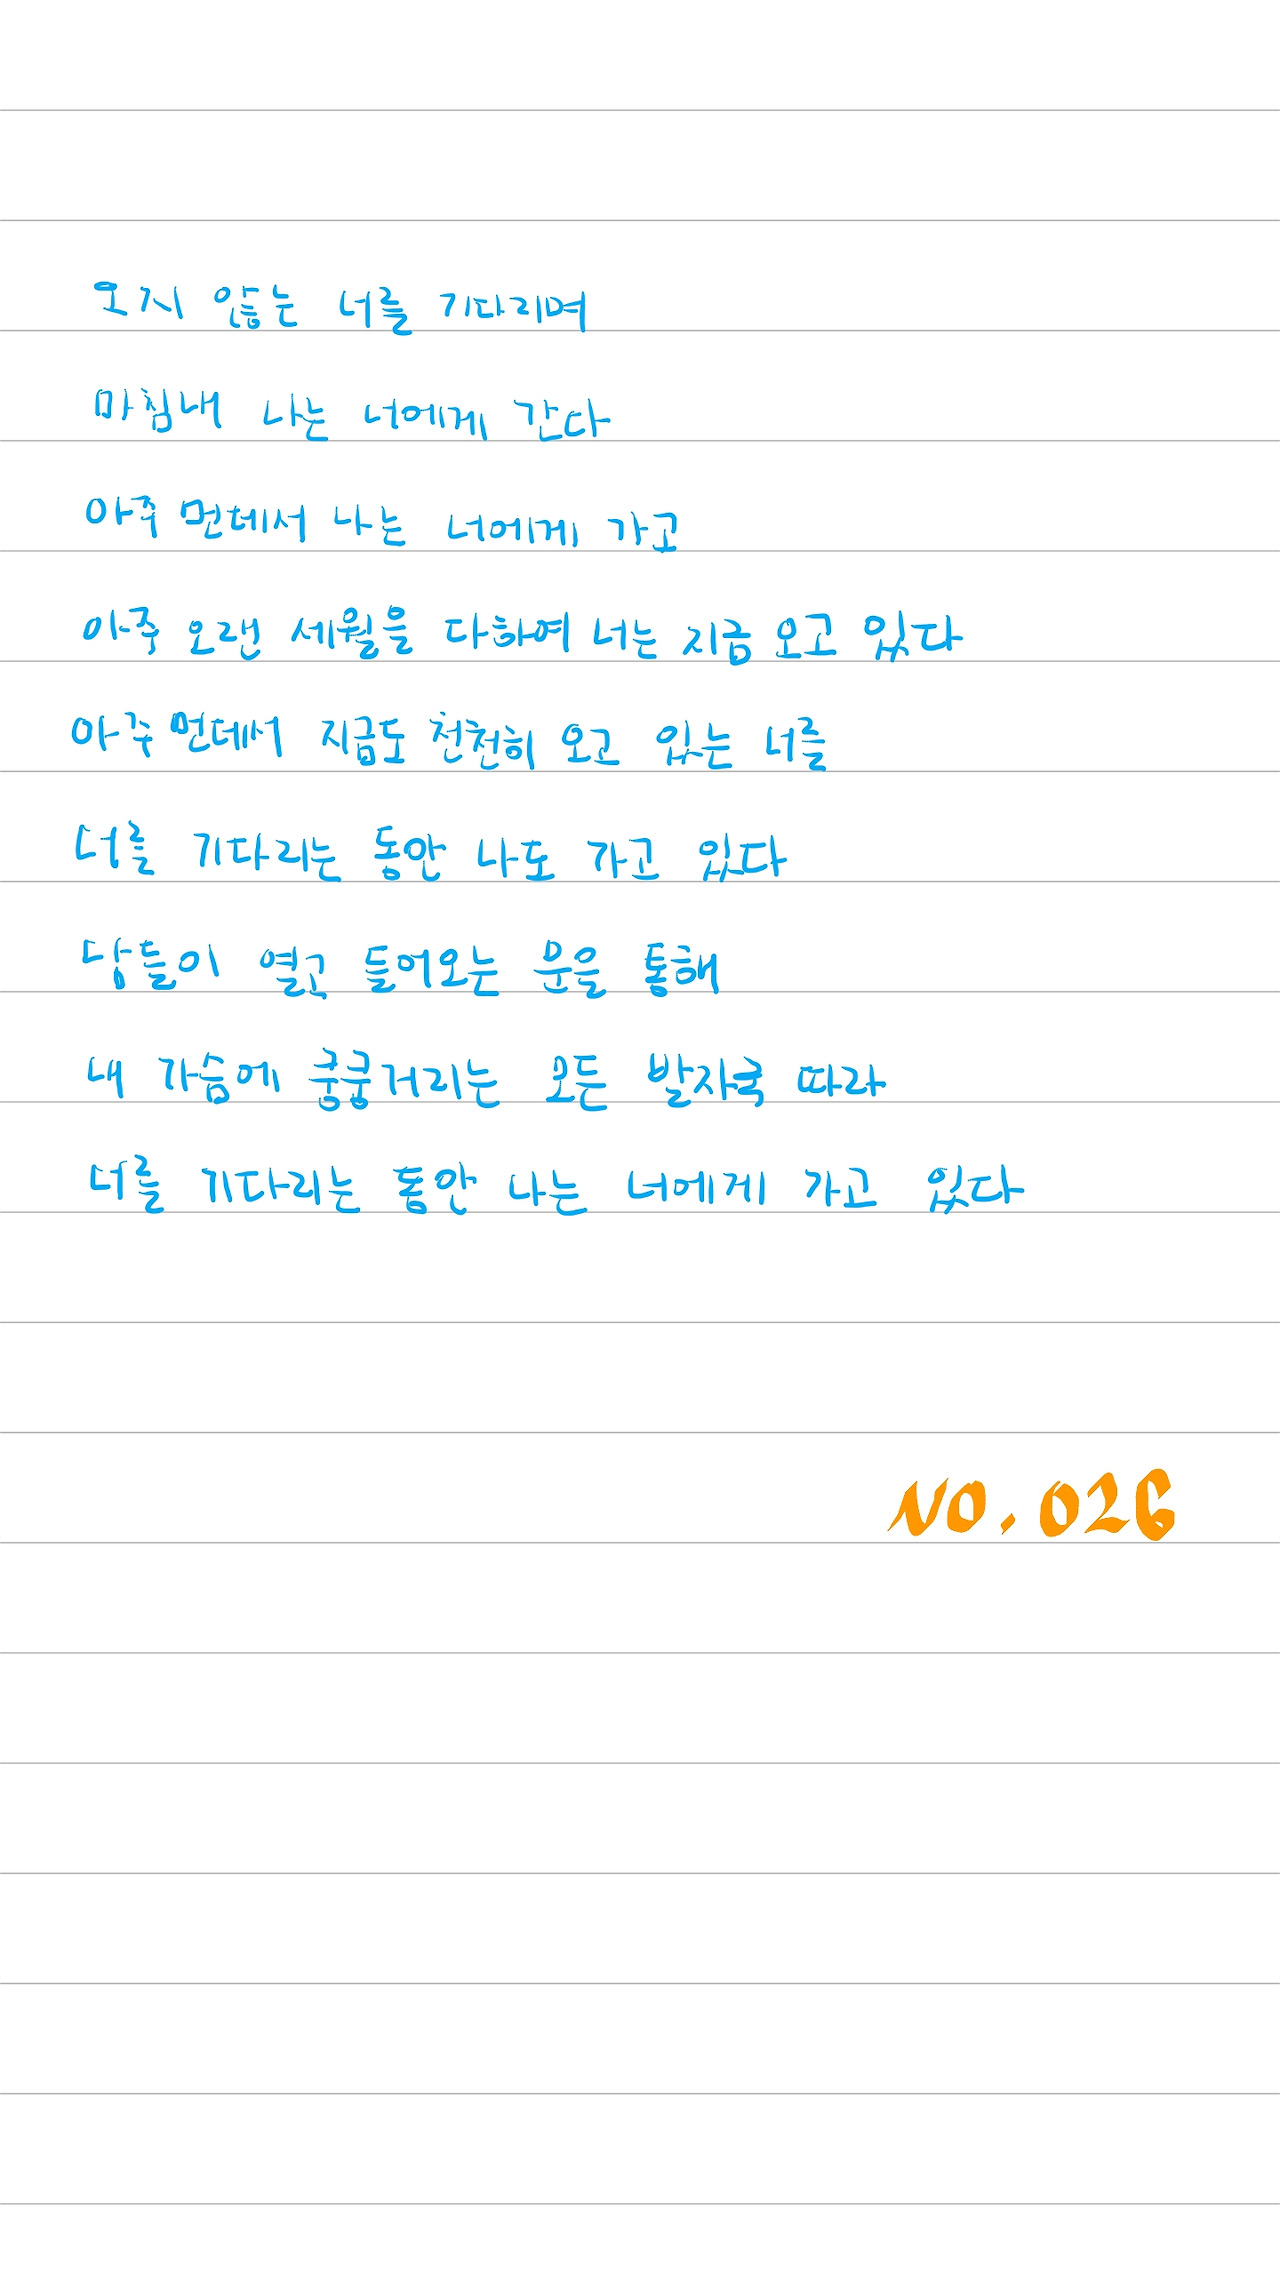 오지 않는 너를 기다리며
마침내 나는 너에게 간다
아주 먼데서 나는 너에게 가고
아주 오랜 세월을 다하여 너는 지금 오고 있다
아주 먼데서 지금도 천천히 오고 있는 너를
너를 기다리는 동안 나도 가고 있다
남들이 열고 들어오는 문을 통해
내 가슴에 쿵쿵거리는 모든 발자국 따라
너를 기다리는 동안 나는 너에게 가고 있다
NO. 026